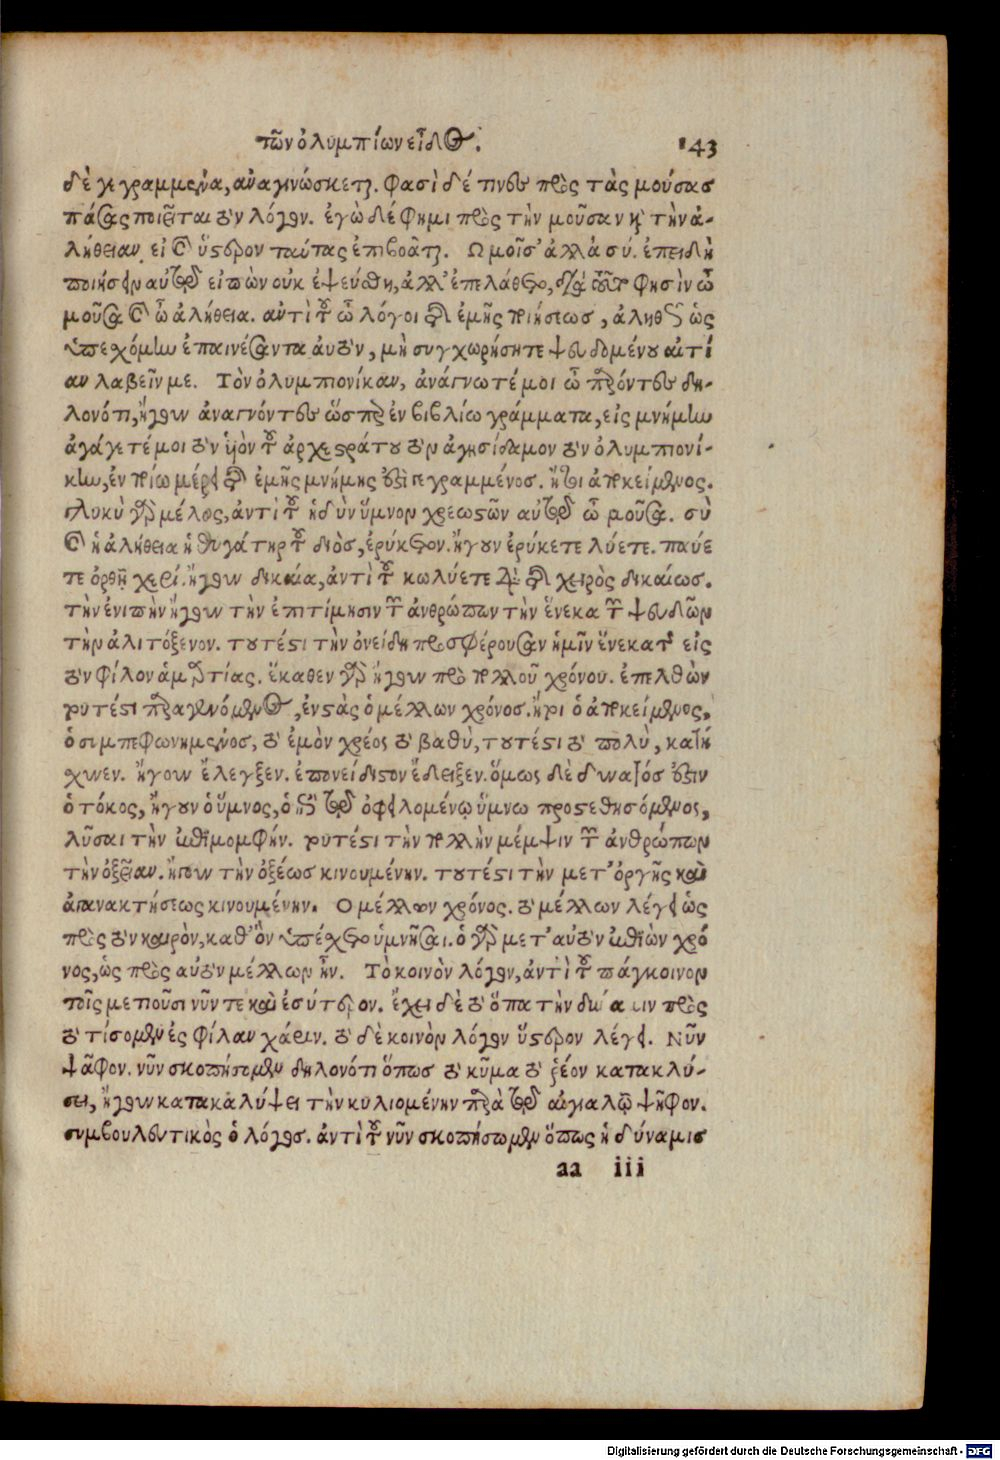 τῶν ὀλυμπίων εἶδος. 143
δὲ γεγραμμένα, ἀναγινώσκεται. φασὶ δέ τινες πρὸς τὰς μούσας
πάσας ποιεῖται τὸν λόγον. ἐγὼ δέ φημι πρὸς τὴν μοῦσαν καὶ τὴν ἀ-
λήθειαν, εἰ καὶ ὕστερον ταύτας ἐπιβοᾶται. Ω μοῖσ' ἀλλὰ σύ. ἐπειδὴ
ποιήσειν αὐτῷ εἰπὼν οὐκ ἐψεύσθη, ἀλλ' ἐπελάθετο, διὰ τοῦτο φησὶν ὦ
μοῦσα καὶ ὦ ἀλήθεια. ἀντὶ τοῦ ὦ λόγοι τῆς ἐμῆς ποιήσεως, ἀληθῶς ὡς
ὑπεχόμην ἐπαινέσαντα αὐτὸν, μὴ συγχωρήσητε ψευδομένου αἰτί
αν λαβεῖν με. Τὸν ὀλυμπιονίκαν, ἀνάγνωτέ μοι ὦ παρόντες δη-
λονότι, ἤγουν ἀναγνόντες ὥσπερ ἐν βιβλίω γράμματα, εἰς μνήμην
ἀγάγετέ μοι τὸν υἱὸν τοῦ ἀρχεστράτου τὸν ἀγησίδαμον τὸν ὀλυμπιονί-
κην, ἐν ποίω μέρει τῆς ἐμῆς μνήμης ἐστὶ γεγραμμένος. ἤτοι ἀποκείμενος.
γλυκὺ γὰρ μέλος, ἀντὶ τοῦ ἡδὺν ὕμνον χρεωστῶν αὐτῷ ὦ μοῦσα. σὺ
καὶ ἡ ἀλήθεια ἡ θυγάτηρ τοῦ διὸς, ἐρύκετον. ἤγουν ἐρύκετε λύετε. παύε
τε ὀρθῇ χερί. ἤγουν δικαία, ἀντὶ τοῦ κωλύετε διὰ τῆς χειρὸς δικαίως.
τὴν ἐνιπὴν ἤγουν τὴν ἐπιτίμησιν τῶν ἀνθρώπων τὴν ἕνεκα τῶν ψευδῶν
τὴν ἀλιτόξενον. τουτέστι τὴν ὀνείδη προσφέρουσαν ἡμῖν ἕνεκα τῆς εἰς
τὸν φίλον ἁμαρτίας. ἕκαθεν γὰρ ἤγουν πρὸ πολλοῦ χρόνου. ἐπελθὼν
τουτέστι παραγενόμενος, ἐνστὰς ὁ μέλλων χρόνος. ἤτοι ὁ ἀποκείμενος,
ὁ συμπεφωνημένος, τὸ ἐμὸν χρέος τὸ βαθὺ, τουτέστι τὸ πολὺ, καταιή
χυνεν. ἤγουν ἔλεγξεν. ἐπονείδιστον ἔδειξεν. ὅμως δὲ δυνατός ἐστιν
ὁ τόκος, ἤγουν ὁ ὕμνος, ὁ ἐν τῷ ὀφειλομένῳ ὕμνω προστεθησόμενος,
λῦσαι τὴν ἐπιμομφήν. τουτέστι τὴν πολλὴν μέμψιν τῶν ἀνθρώπων
τὴν ὀξεῖαν. ἤτοι τὴν ὀξέως κινουμένην. τουτέστι τὴν μετ' ὀργῆς καὶ
ἀγανακτήσεως κινουμένην. Ο μέλλων χρόνος. τὸ μέλλων λέγει ὡς
πρὸς τὸν καιρὸν, καθ' ὃν ὑπέχετο ὑμνῆσαι. ὁ γὰρ μετ' αὐτὸν ἐπιὼν χρό
νος, ὡς πρὸς αὐτὸν μέλλων ἦν. Τὸ κοινὸν λόγον, ἀντὶ τοῦ πάγκοινον
τοῖς μετιοῦσι νῦν τε καὶ ἐσύτερον. ἔχει δὲ τὸ ὅπα τὴν δύναμιν πρὸς
τὸ τίσομεν ἐς φίλαν χάριν. τὸ δὲ κοινὸν λόγον ὕστερον λέγει. Νῦν
ψᾶφον. νῦν σκοπήσωμεν δηλονότι ὅπως τὸ κῦμα τὸ ῥέον κατακλύ-
σει, ἤγουν κατακαλύψει τὴν κυλιομένην παρὰ τῷ αἰγιαλῷ ψῆφον.
συμβουλευτικὸς ὁ λόγος. ἀντὶ τοῦ νῦν σκοπήσωμεν ὅπως ἡ δύναμις
aa iii
Digitalisierung gefördert durch die Deutsche Forschungsgemeinschaft - DFG